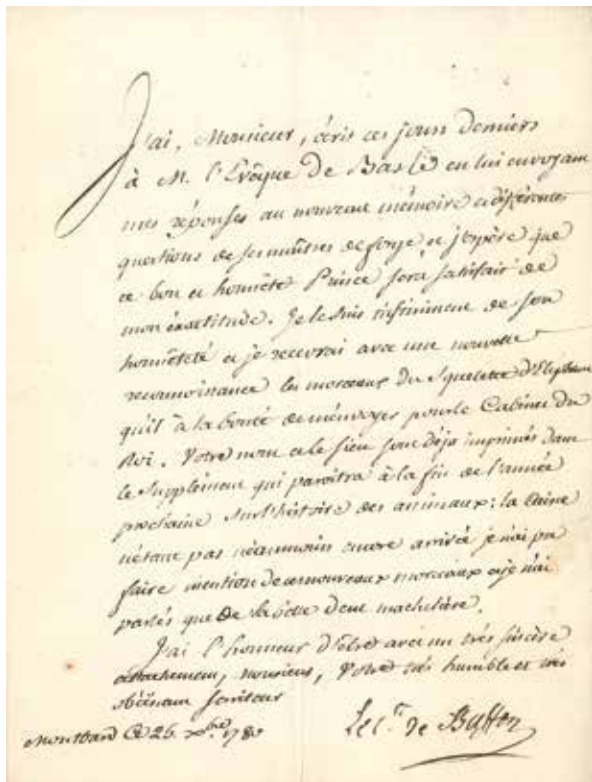 J'ai, Monsieur, écris ces jours derniers
à M. l'Evêque de Basle en lui envoyant
mes réponses au nouveau mémoire et différentes
questions de ses maîtres de forge, et j'espère que
ce bon et honnête Prince sera satisfait de
mon exactitude. Je le suis infiniment de son
honnêteté et je recevrai avec une nouvelle
reconnoissance les morceaux du Squelette d'Elephan
qu'il à la bonté de m'envoyer pour le Cabinet du
Roi. Votre nom et le sien sont déja imprimés dans
le Supplément qui paroitra à la fin de l'année
prochaine sur l'histoire des animaux: la Caisse
n'étant pas néanmoins encore arrivée je n'ai pu
faire mention de ces nouveaux morceaux et je n'ai
parlés que de la belle dent macheliére.
J'ai l'honneur d'être avec un très sincére
attachement, monsieur, Votre très humble et très
obéissant serviteur
Montbard Ce 26. xbre. 1780 Le Cte. de Buffon